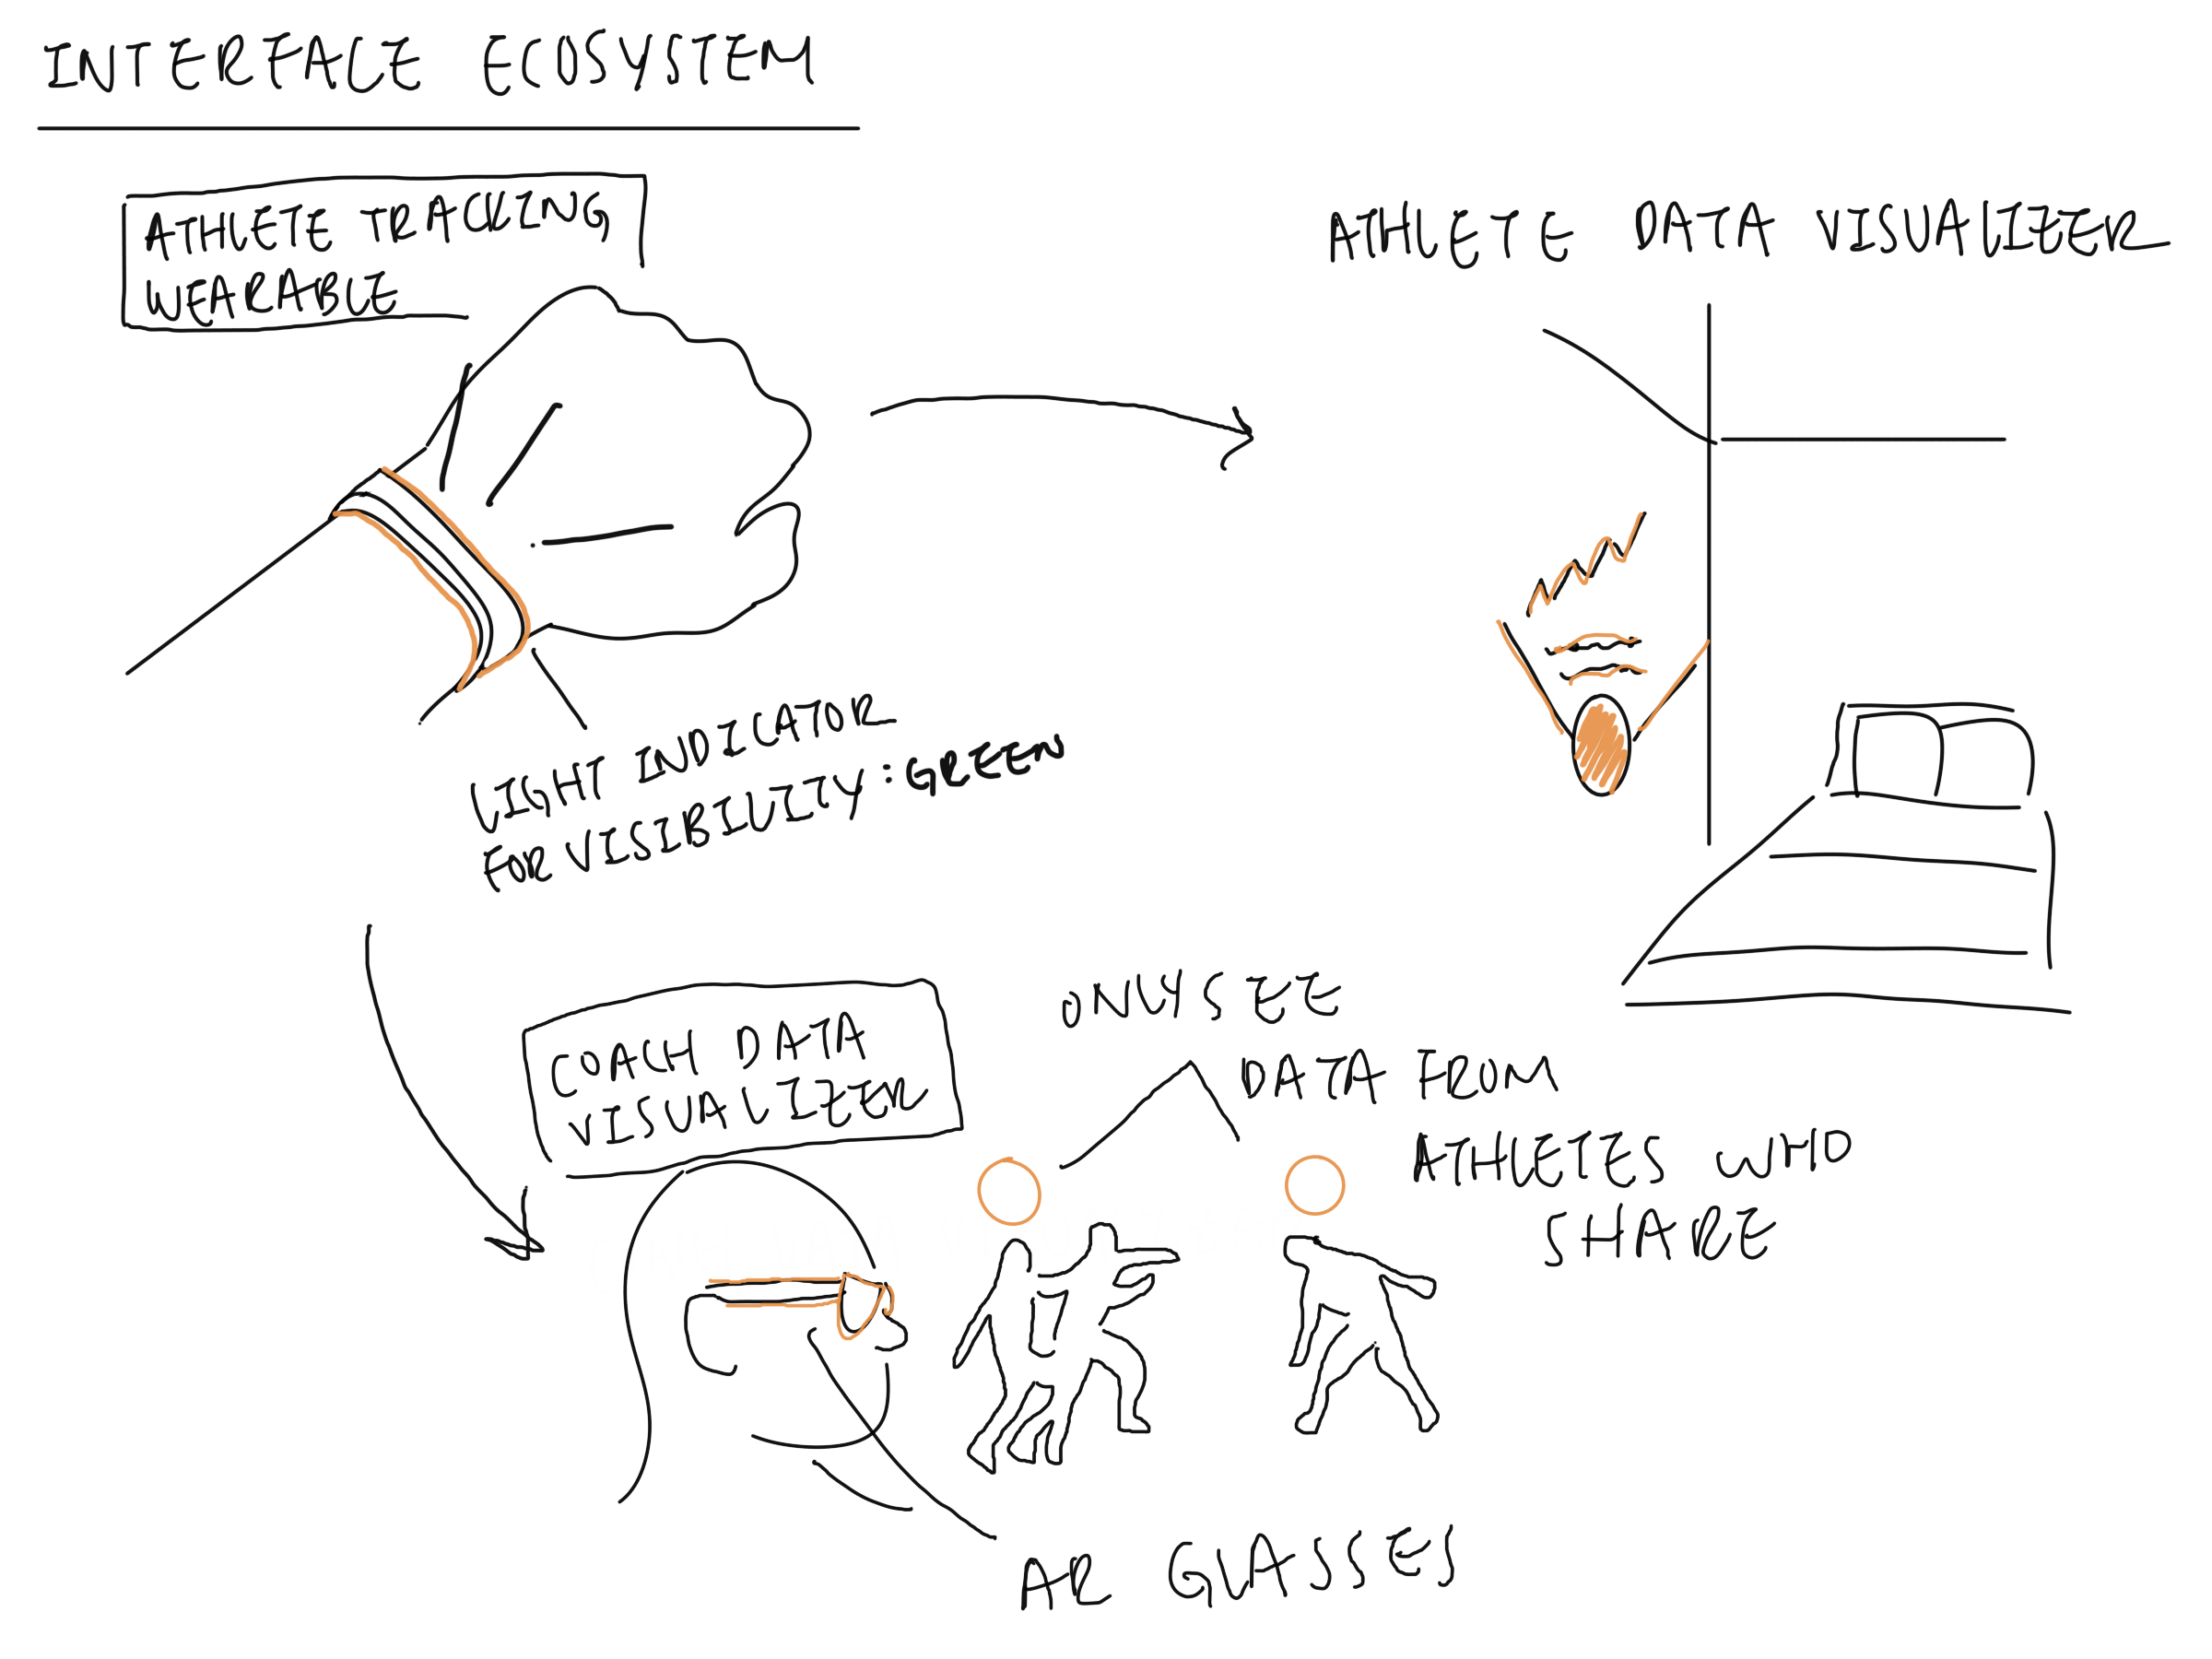 INTERFACE ECOSYSTEM
ATHLETE TRACKING
WEARABLE
ATHLETE DATA VISUALIZER
LIGHT INDICATOR
FOR VISIBILITY: GREEN
COACH DATA
VISUALIZER
ONLY SEE
DATA FROM
ATHLETES WHO
SHARE
AR GLASSES